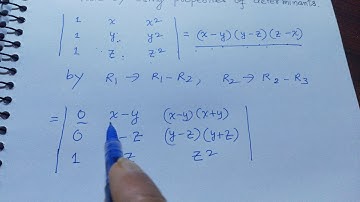 by using properties of determinants.
| 1 x x² |
| 1 y y² | = (x-y)(y-z)(z-x)
| 1 z z² |
by R₁ → R₁-R₂, R₂ → R₂-R₃
| 0 x-y (x-y)(x+y) |
= | 0 -z (y-z)(y+z) |
| 1 z z² |